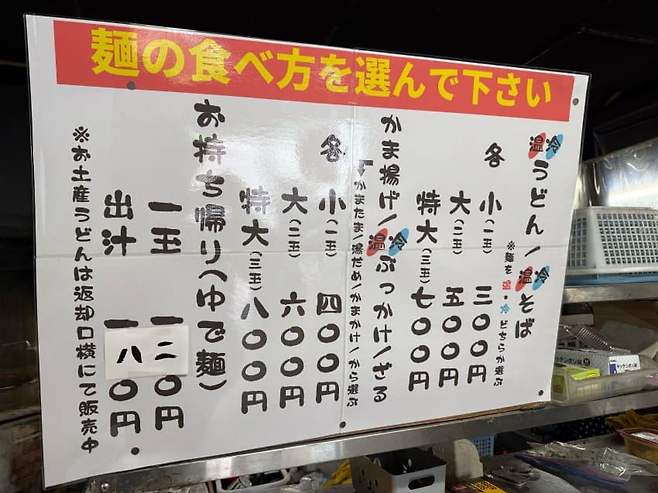 麺の食べ方を選んで下さい
温冷うどん/温冷そば
※麺を温・冷どちらか選ぶ
各 小(一玉) 三〇〇円
大(二玉) 五〇〇円
特大(三玉) 七〇〇円
かま揚げ/温冷ぶっかけ/ざる
かまたま/湯だめ/かまかけ/から選ぶ
各 小(一玉) 四〇〇円
大(二玉) 六〇〇円
特大(三玉) 八〇〇円
お持ち帰り(ゆで麺)
一玉 一二〇円
出汁 一八〇円
※お土産うどんは返却口横にて販売中